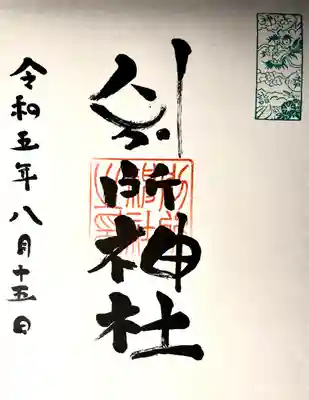 別所神社
令和五年八月十五日